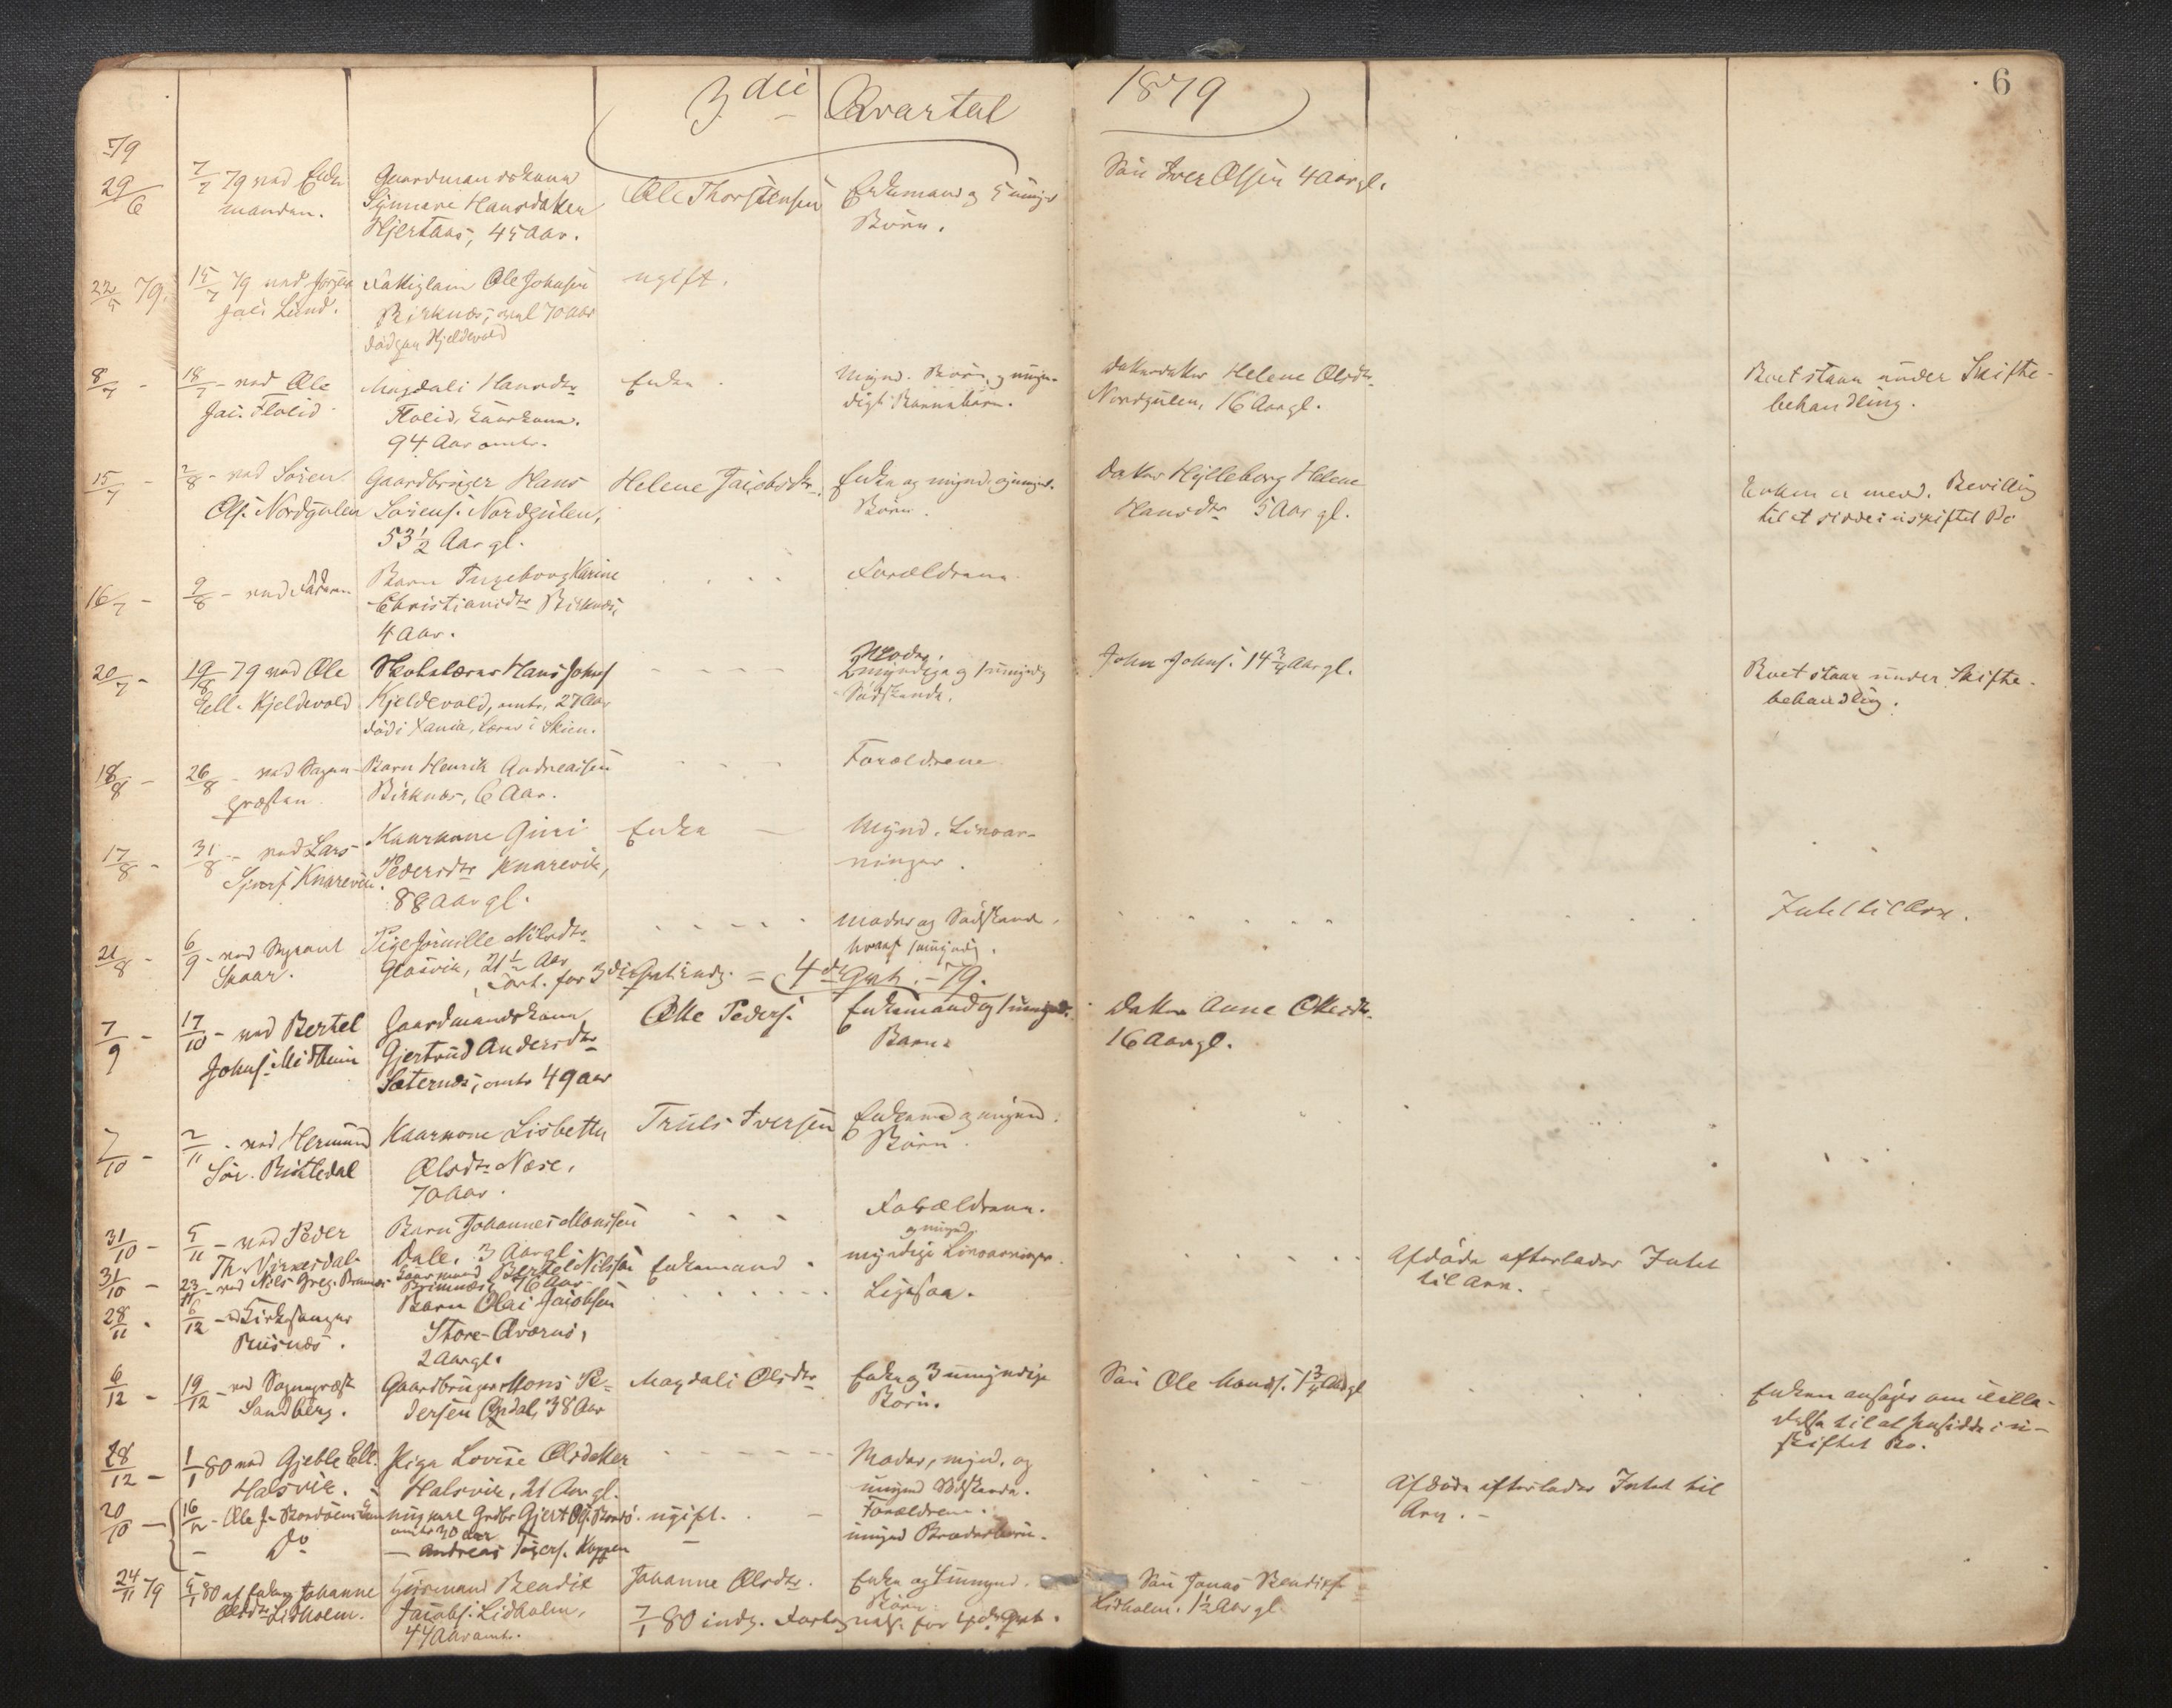 3die Qvartal 1879
6
79
29/6
7/7 79 ved Enke-
manden.
Gaardmandskone
Synneve Hansdatter
Hjertaas, 45 Aar.
Ole Thorstensen
Enkemand og 5 umynd.
Börn.
Sön Iver Olsen 4 Aar gl.
22/5 79.
15/7 79 ved Jörgen
Jac. Lund.
Fattiglem Ole Johnsen
Birknæs, vel 70 Aar
död paa Kjeldevold
ugift.
8/7 -
18/7 - ved Ole
Jac. Flolid
Magdali Hansdtr
Flolid, Kaarkone.
94 Aar omtr.
Enke
Mynd. Börn og umyn-
digt Barnebarn.
Datterdatter Helene Olsdtr
Nordgulen, 16 Aar gl.
Boet staar under Skifte-
behandling.
15/7 -
2/8 - ved Sören
Ols. Nordgulen
Gaardbruger Hans
Sörens. Nordgulen,
53 1/2 Aar gl.
Helene Jacobsdtr.
Enke og mynd. og umynd.
Börn.
Datter Hylleborg Helene
Hansdtr 5 Aar gl.
Enken er medd. Bevilling
til at sidde i uskiftet Bo
16/7 -
9/8 - ved Faderen
Barn Ingeborg Karine
Christiansdtr Birknæs,
4 Aar.
Forældrene
20/7 -
19/8 - 79 ved Ole
Ell. Kjeldevold
Skolelærer Hans Johns.
Kjeldevold, omtr. 27 Aar
död i Xania, Lærer i Skien.
Moder,
2 myndige og 1 umyndig
Södskende.
John Johns. 14 3/4 Aar gl.
Boet staar under Skifte-
behandling.
18/8 -
26/8 - ved Sogne-
præsten
Barn Henrik Andreassen
Birknæs, 6 Aar.
Forældrene
17/8 -
31/8 - ved Lars
Knarevik.
Kaarkone Guri
Pedersdtr Knarevik,
88 Aar gl.
Enke
Mynd. Livsar-
ninger.
Intet til Arv.
21/8 -
6/9 - ved
Skaar.
Pige Nilsdtr
Glosvik, 21 1/2 Aar
Moder og Södskende,
hvoraf 1 umyndig.
Fort. for 3die Qrt. indg. = 4de Qrt. - 79.
7/9 -
17/10 - ved Bertel
Johns. Midttun
Gaardmandskone
Gjertrud Andersdtr
Sæternes, omtr 49 Aar
Olle Peders.
Enkemand og 1 umynd.
Barn.
Datter Anne Ollesdtr.
16 Aar gl.
7/10 -
2/11 - ved Hermund
Sör. Risledal
Kaarkone Lisbetha
Olsdtr Nese,
70 Aar.
Truls Iversen
Enkemd og mynd.
Börn.
31/10 -
5/11 - ved Peder
Th.
Barn Johannes Monssen
Dale, 3 Aar gl.
Forældrene.
31/10 -
23/11 - ved Nils Greg. Brimnæs
Kaarmand Bertel Nilssen
Brimnæs, 76 Aar
Enkemand
og umynd.
myndige Livsarninger.
Afdöde efterlader Intet
til Arv.
28/11 -
6/12 - ved Kirkesanger
Riisnæs.
Barn Olai Jacobsen
Store-Qværnö,
2 Aar gl.
Ligesaa.
6/12 -
19/12 - ved Sognepræst
Sandberg.
Gaardbruger Mons Pe-
dersen Opdal, 38 Aar
Magdali Olsdtr
Enke og 3 umyndige
Börn.
Sön Ole Mons. 1 3/4 Aar gl
Enken ansöger om Tilla-
delse til at hensidde i u-
skiftet Bo.
28/12 -
1/1 80 ved Gjeble Ell.
Halsvik.
Pige Lovise Olsdatter
Halsvik, 21 Aar gl.
Moder, mynd. og
umynd Södskende.
Afdöde efterlader Intet til
Arv. -
20/10 -
16/12 - Ole J.
Ungkarl Gjert Ols.
omtr 30 Aar
ugift.
Forældrene.
- Do
- Andreas
umynd Broderbörn.
24/11 79
5/1 80 af Enken Johanne
Olsdtr Lidholm.
Huusmand Bendik
Jacobs. Lidholm,
44 Aar omtr.
Johanne Olsdtr.
Enke og 4 umynd.
Börn.
Sön Jonas Bendiks.
Lidholm, 1 1/2 Aar gl.
7/1 80 indg. Fortegnelse for 4de Qrt.